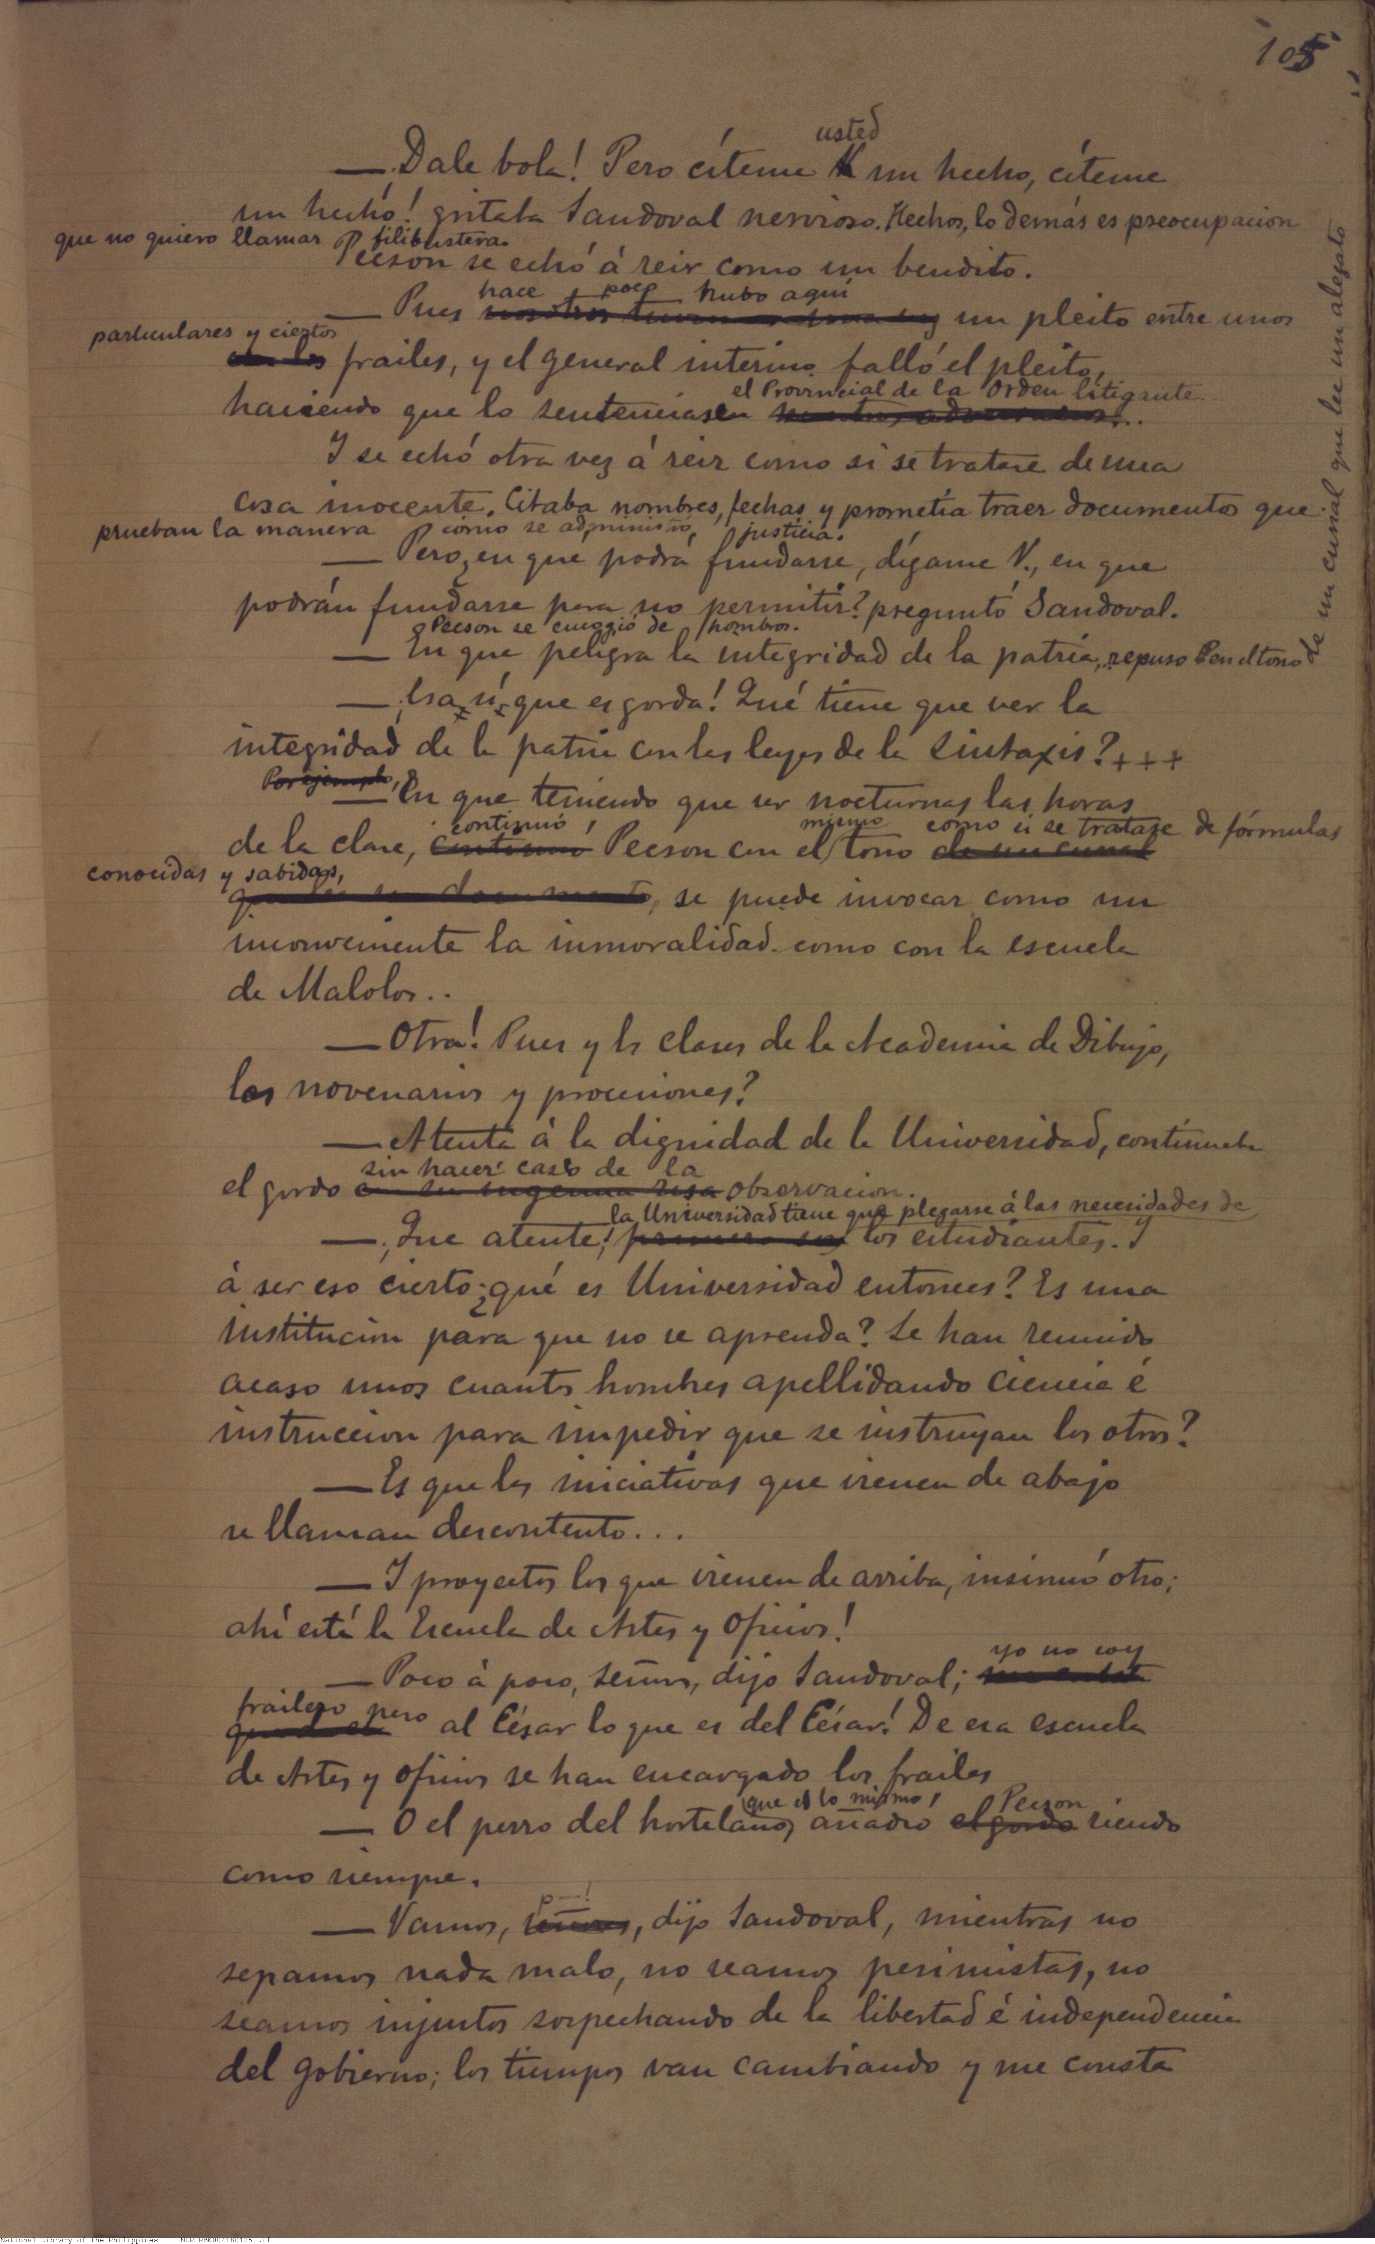 105
usted
— Dale bola! Pero cíteme un hecho, cíteme
un hecho! gritaba Sandoval nervioso. Hechos, lo demás es preocupacion
que no quiero llamar filibustera.
Pecson se echó á reir como un bendito.
hace poco hubo aquí
— Pues un pleito entre unos
particulares y ciertos
frailes, y el general interino falló el pleito,
el Provincial de la Orden litigante
haciendo que lo sentenciase
Y se echó otra vez á reir como si se tratase de una
cosa inocente. Citaba nombres, fechas y prometía traer documentos que
prueban la manera como se administró justicia.
— Pero, en que podrá fundarse, dígame V., en que
podrán fundarse para no permitir? preguntó Sandoval.
Pecson se encogió de hombros.
— En que peligra la integridad de la patria, repuso P en el tono
de un curial que lee un alegato
— ¡Esa sí que es gorda! Qué tiene que ver la
integridad de la patria con las leyes de la Sintaxis? + + +
Por ejemplo,
— En que teniendo que ser nocturnas las horas
continuó mismo como si se tratase de fórmulas
de la clase, continuó Pecson con el tono de un curial
conocidas y sabidas,
se puede invocar como un
inconveniente la inmoralidad como con la escuela
de Malolos..
— Otra! Pues y las clases de la Academia de Dibujo,
los novenarios y procesiones?
— Atenta á la dignidad de la Universidad, continuaba
sin hacer caso de la
el gordo en su ingenua risa observacion.
la Universidad tiene que plegarse á las necesidades de
— ¡Que atente! primero son los estudiantes. Y
á ser eso cierto ¿qué es Universidad entonces? Es una
institucion para que no se aprenda? Se han reunido
acaso unos cuantos hombres apellidando ciencia é
instruccion para impedir que se instruyan los otros?
— Es que las iniciativas que vienen de abajo
se llaman descontento...
— Y proyectos los que vienen de arriba, insinuó otro;
ahí está la Escuela de Artes y Oficios!
yo no soy
— Poco á poco, señores, dijo Sandoval;
frailero pero
al César lo que es del César! De esa escuela
de Artes y Oficios se han encargado los frailes
que es lo mismo, Pecson
— O el perro del hortelano, añadió el gordo riendo
como siempre.
— Vamos, señores, dijo Sandoval, mientras no
sepamos nada malo, no seamos pesimistas, no
seamos injustos sospechando de la libertad é independencia
del gobierno; los tiempos van cambiando y me consta